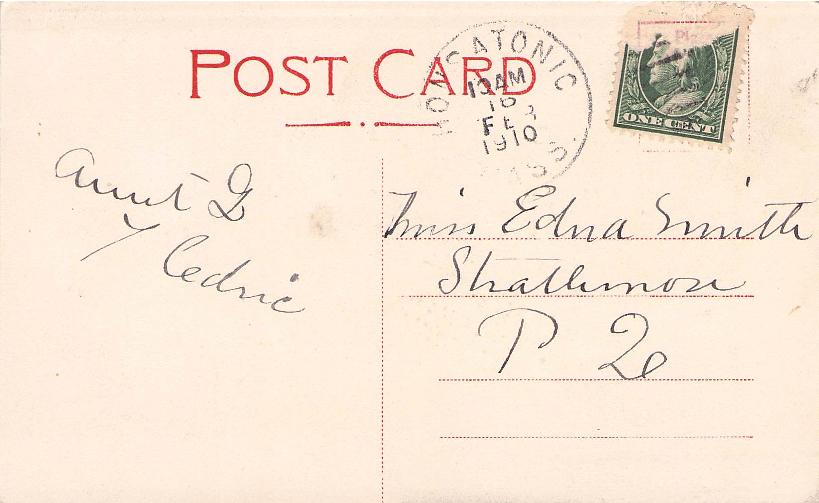 POST CARD
HOUSATONIC
10 AM
16
FEB
1910
MASS.
Pla
ONE CENT
Aunt G
Cedric
Miss Edna Smith
Strathmore
P Q